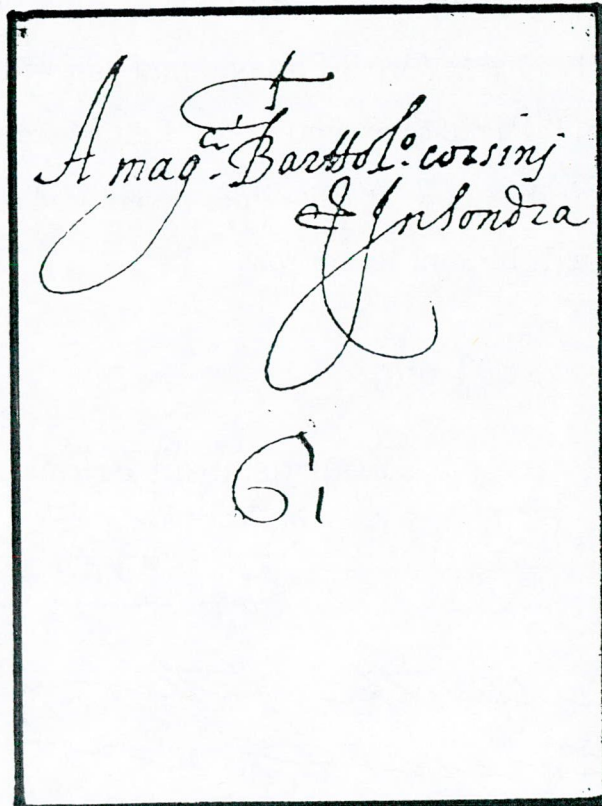 A mag.ci Barttol.o corsinj
Jn londra
61